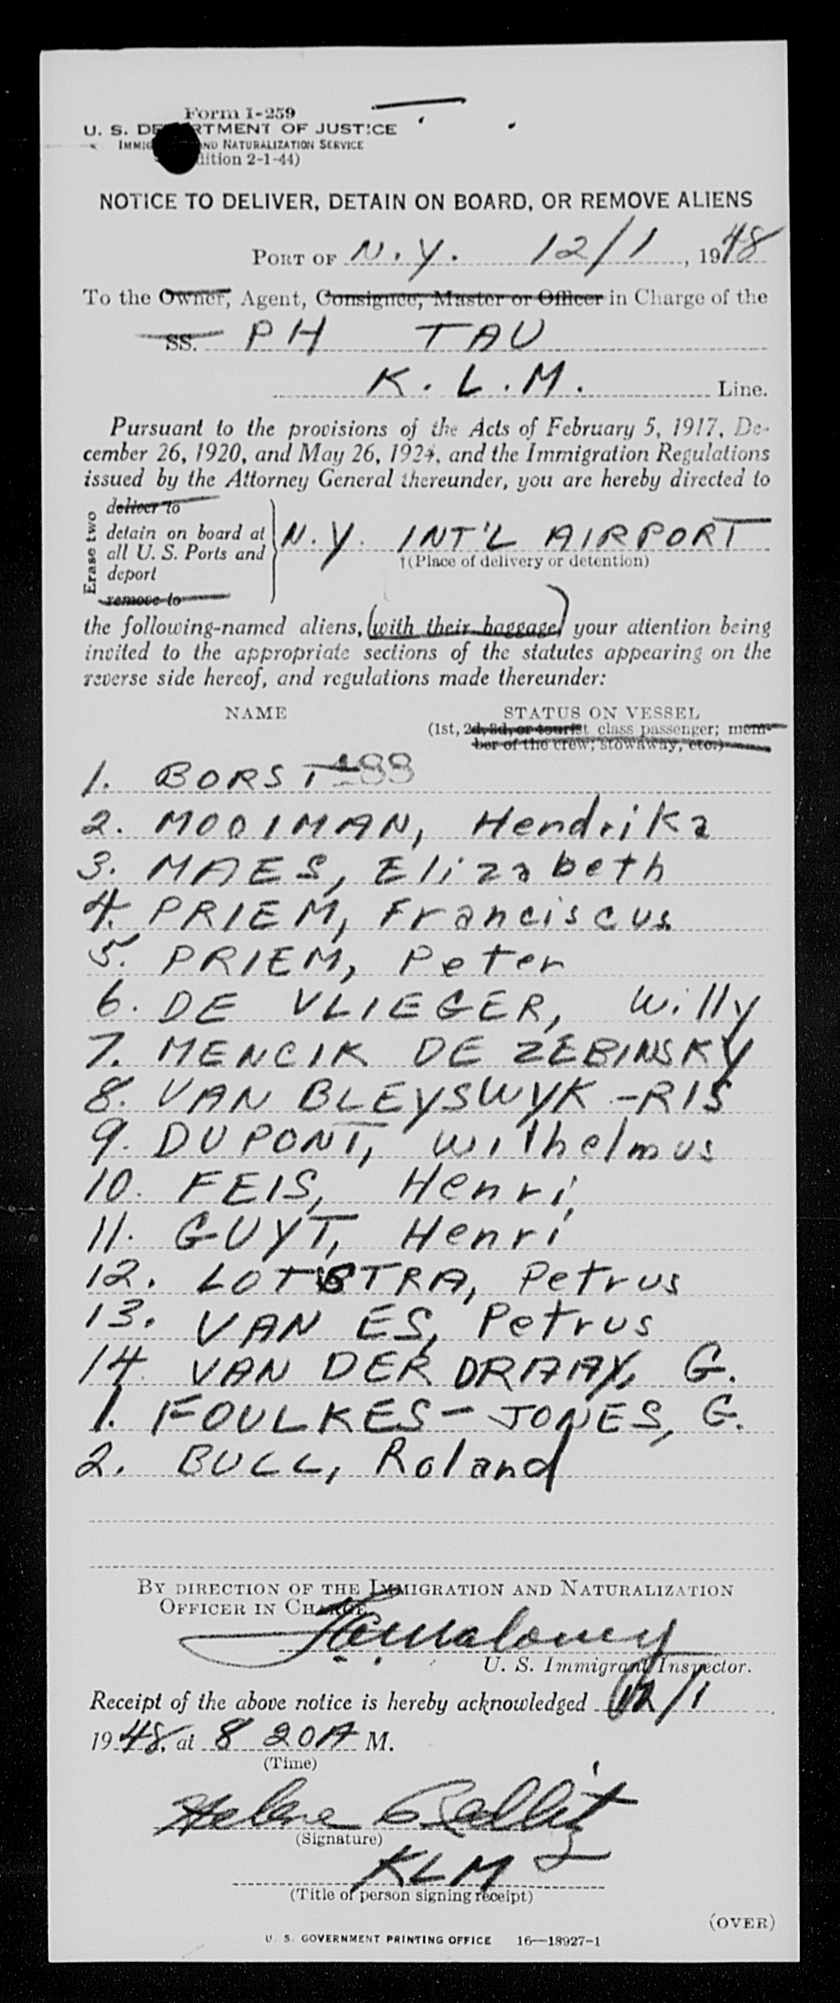 Form I-259
U. S. DEPARTMENT OF JUSTICE
IMMIGRATION AND NATURALIZATION SERVICE
(Edition 2-1-44)
NOTICE TO DELIVER, DETAIN ON BOARD, OR REMOVE ALIENS
PORT OF N.Y. 12/1, 1948
To the Owner, Agent, Consignee, Master or Officer in Charge of the
SS. PH TAU
K.L.M. Line.
Pursuant to the provisions of the Acts of February 5, 1917, De-
cember 26, 1920, and May 26, 1924, and the Immigration Regulations
issued by the Attorney General thereunder, you are hereby directed to
Erase two
deliver to
detain on board at
all U. S. Ports and
deport
remove to
N.Y. INT'L AIRPORT
†(Place of delivery or detention)
the following-named aliens, (with their baggage) your attention being
invited to the appropriate sections of the statutes appearing on the
reverse side hereof, and regulations made thereunder:
NAME STATUS ON VESSEL
(1st, 2d, 3d, or tourist class passenger; mem-
ber of the crew; stowaway, etc.)
1. BORST 488
2. MOOIMAN, Hendrika
3. MAES, Elizabeth
4. PRIEM, Franciscus
5. PRIEM, Peter
6. DE VLIEGER, Willy
7. MENCIK DE ZEBINSKY
8. VAN BLEYSWYK-RIS
9. DUPONT, Wilhelmus
10. FEIS, Henri
11. GUYT, Henri
12. LOTSTRA, Petrus
13. VAN ES, Petrus
14. VAN DER DRAAY, G.
1. FOULKES-JONES, G.
2. BULL, Roland
BY DIRECTION OF THE IMMIGRATION AND NATURALIZATION
OFFICER IN CHARGE
Maloney
U. S. Immigrant Inspector.
Receipt of the above notice is hereby acknowledged 12/1
1948, at 8 20A M.
(Time)
Helene
(Signature)
KLM
(Title of person signing receipt)
(OVER)
U. S. GOVERNMENT PRINTING OFFICE 16—18927-1